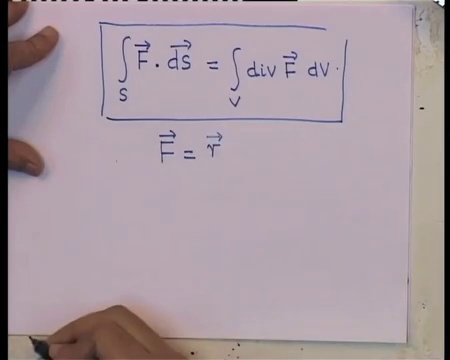 ∫_S F⃗ · d⃗s = ∫_V div F⃗ dV.
F⃗ = r⃗